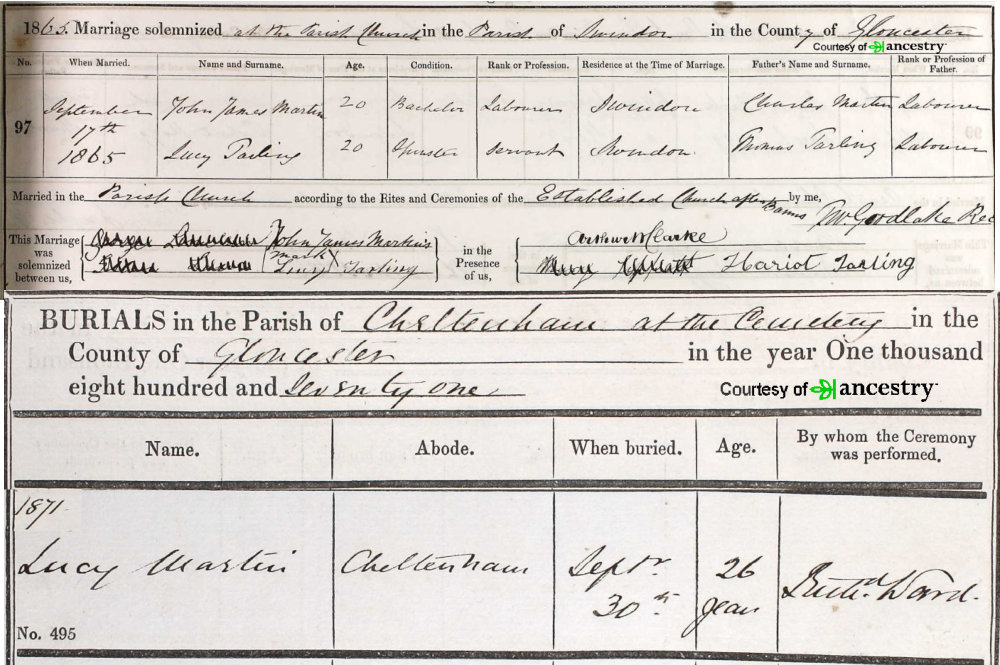 1865. Marriage solemnized at the Parish Church in the Parish of Swindon in the County of Gloucester
Courtesy of ancestry
No. When Married. Name and Surname. Age. Condition. Rank or Profession. Residence at the Time of Marriage. Father's Name and Surname. Rank or Profession of Father.
97 September 17th 1865 John James Martin 20 Bachelor Labourer Swindon Charles Martin Labourer
Lucy Tarling 20 Spinster Servant Swindon Thomas Tarling Labourer
Married in the Parish Church according to the Rites and Ceremonies of the Established Church after Banns by me,
Goodlake Rec
This Marriage was solemnized between us, John James Martin's mark Lucy Tarling in the Presence of us, Arthur Clarke Hariot Tarling
BURIALS in the Parish of Cheltenham at the Cemetery in the
County of Gloucester in the year One thousand
eight hundred and Seventy one
Courtesy of ancestry
Name. Abode. When buried. Age. By whom the Ceremony was performed.
1871
Lucy Martin Cheltenham Septr 30th 26 years Ward.
No. 495